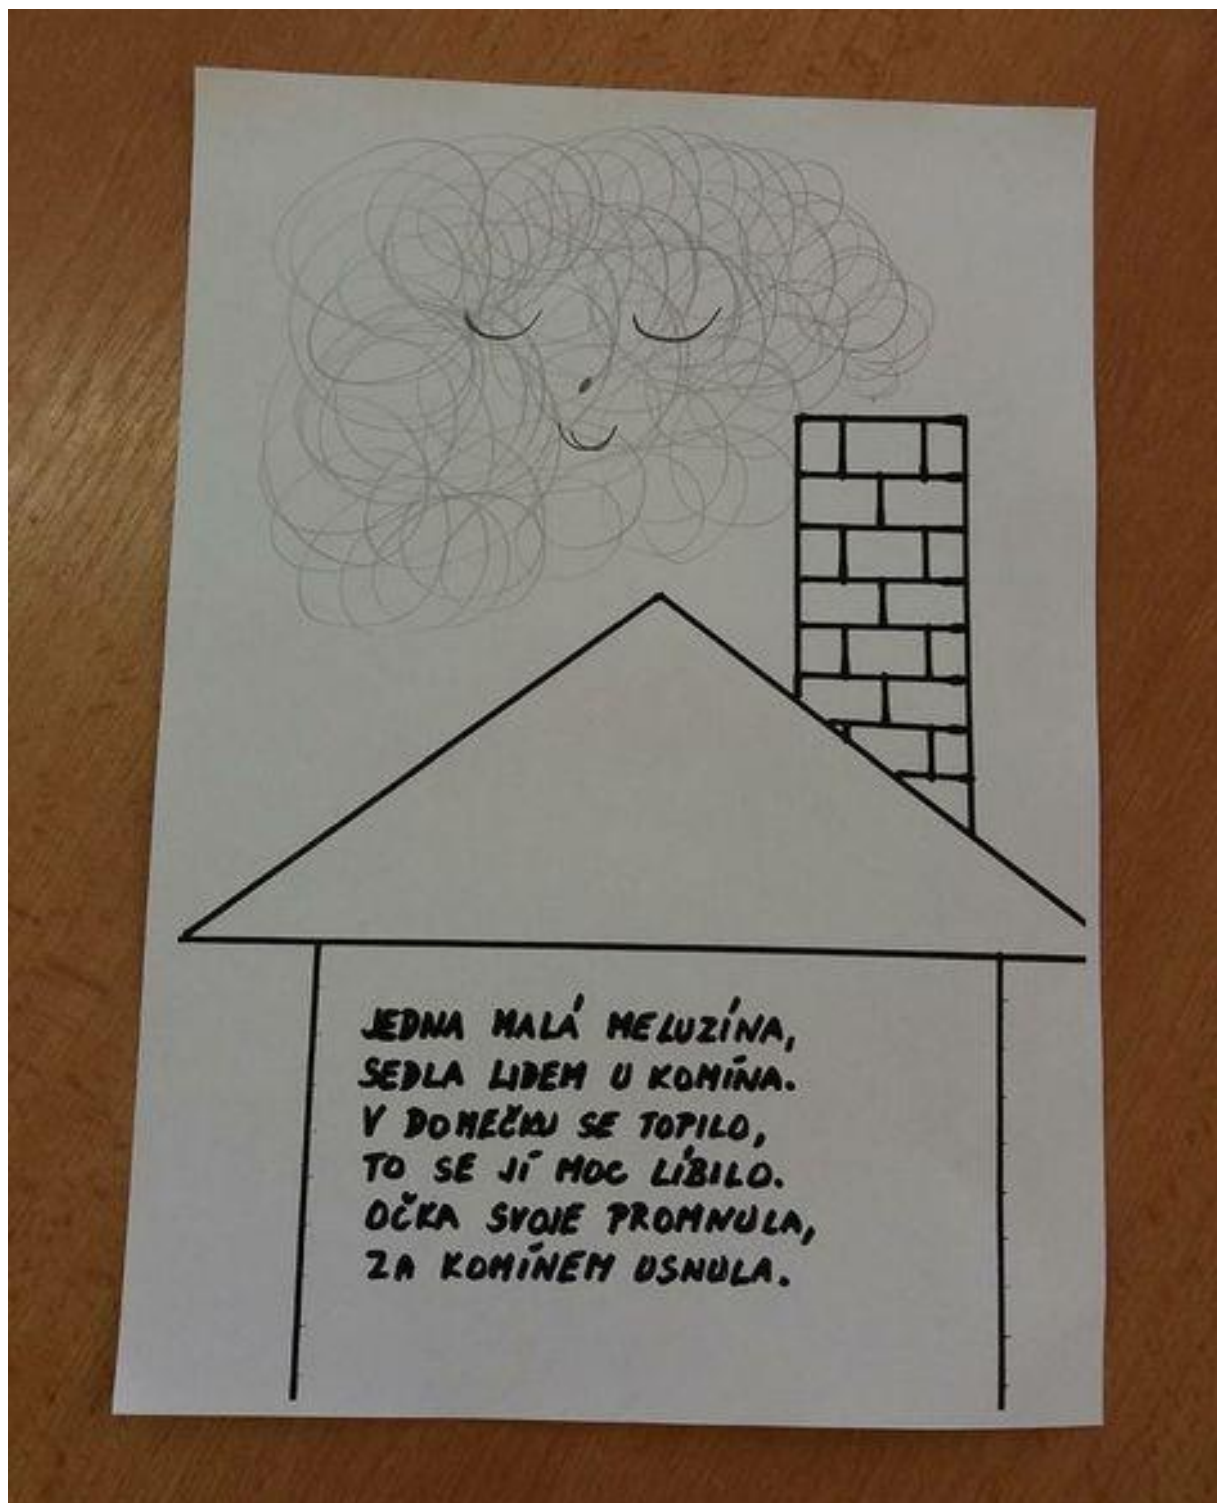 JEDNA MALÁ MELUZÍNA,
SEDLA LIDEM U KOMÍNA.
V DOMEČKU SE TOPILO,
TO SE JÍ MOC LÍBILO.
OČKA SVOJE PROMNULA,
ZA KOMÍNEM USNULA.